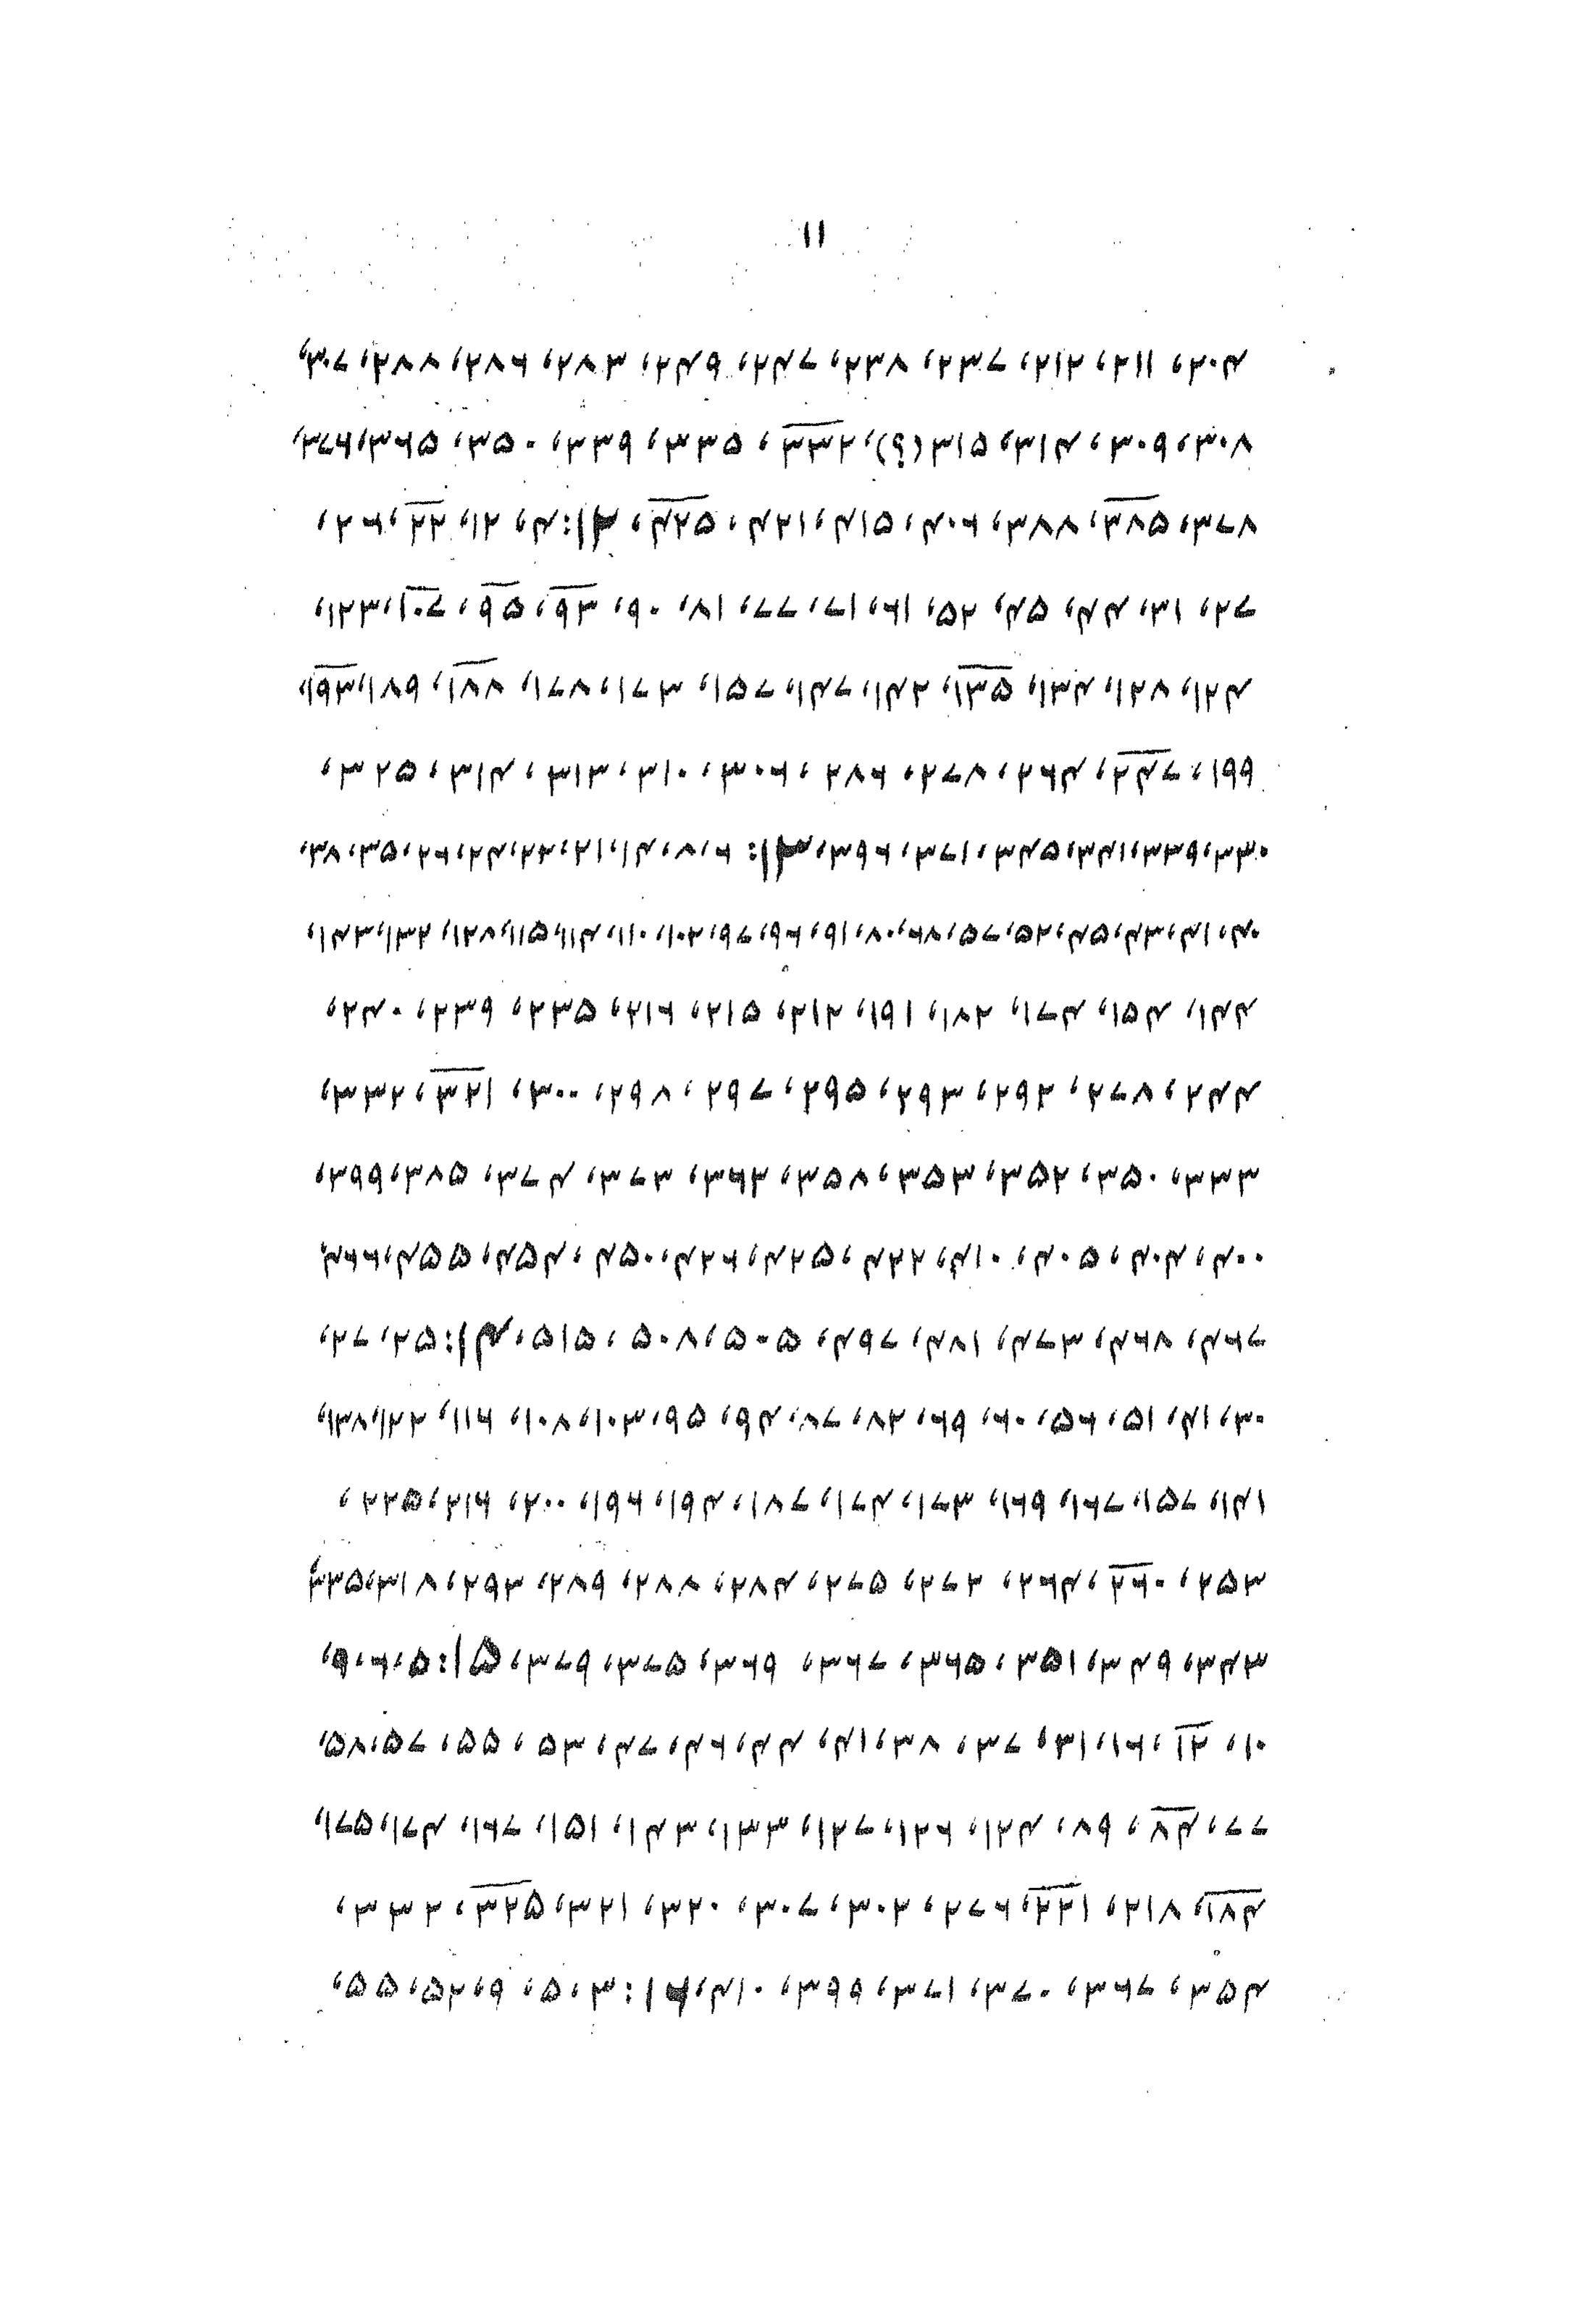 ۱۱
۲۰۴، ۲۱۱، ۲۱۲، ۲۳۷، ۲۳۸، ۲۴۷، ۲۴۹، ۲۸۳، ۲۸۶، ۲۸۸، ۳۰۷،
۳۰۸، ۳۰۹، ۳۱۴، ۳۱۵(؟)، ۳۳۲، ۳۳۵، ۳۳۹، ۳۵۰، ۳۶۵، ۳۷۶،
۳۷۸، ۳۸۵، ۳۸۸، ۴۰۶، ۴۱۵، ۴۲۱، ۴۲۵، ۱۲: ۴، ۱۲، ۲۲، ۲۶،
۲۷، ۳۱، ۴۴، ۴۵، ۵۲، ۶۱، ۷۱، ۷۷، ۸۱، ۹۰، ۹۳، ۹۵، ۱۰۷، ۱۲۳،
۱۲۴، ۱۲۸، ۱۳۴، ۱۳۵، ۱۴۲، ۱۴۷، ۱۵۷، ۱۷۳، ۱۷۸، ۱۸۸، ۱۸۹، ۱۹۳،
۱۹۹، ۲۴۷، ۲۶۴، ۲۷۸، ۲۸۶، ۳۰۶، ۳۱۰، ۳۱۳، ۳۱۴، ۳۲۵،
۳۳۰، ۳۳۹، ۳۴۱، ۳۴۵، ۳۷۱، ۳۹۶، ۱۳: ۶، ۸، ۱۴، ۲۱، ۲۲، ۲۴، ۲۶، ۳۵، ۳۸،
۴۰، ۴۱، ۴۳، ۴۵، ۵۲، ۵۷، ۶۸، ۸۰، ۹۱، ۹۶، ۹۷، ۱۰۲، ۱۱۰، ۱۱۴، ۱۱۵، ۱۲۸، ۱۳۲، ۱۴۳،
۱۴۴، ۱۵۴، ۱۷۴، ۱۸۲، ۱۹۱، ۲۱۲، ۲۱۵، ۲۱۶، ۲۳۵، ۲۳۹، ۲۴۰،
۲۴۴، ۲۷۸، ۲۹۲، ۲۹۳، ۲۹۵، ۲۹۷، ۲۹۸، ۳۰۰، ۳۲۱، ۳۳۲،
۳۳۳، ۳۵۰، ۳۵۲، ۳۵۳، ۳۵۸، ۳۶۲، ۳۷۳، ۳۷۴، ۳۸۵، ۳۹۹،
۴۰۰، ۴۰۴، ۴۰۵، ۴۱۰، ۴۲۲، ۴۲۵، ۴۲۶، ۴۵۰، ۴۵۴، ۴۵۵، ۴۶۶،
۴۶۷، ۴۶۸، ۴۷۳، ۴۸۱، ۴۹۷، ۵۰۵، ۵۰۸، ۵۱۵، ۱۴: ۲۵، ۲۷،
۳۰، ۴۱، ۵۱، ۵۶، ۶۰، ۶۹، ۸۲، ۸۷، ۹۴، ۹۵، ۱۰۳، ۱۰۸، ۱۱۶، ۱۲۲، ۱۳۸،
۱۴۱، ۱۵۷، ۱۶۷، ۱۶۹، ۱۷۳، ۱۷۴، ۱۸۷، ۱۹۴، ۱۹۶، ۲۰۰، ۲۱۶، ۲۲۵،
۲۵۳، ۲۶۰، ۲۶۴، ۲۷۳، ۲۷۵، ۲۸۴، ۲۸۸، ۲۸۹، ۲۹۳، ۳۱۸، ۳۳۵،
۳۴۳، ۳۴۹، ۳۵۱، ۳۶۵، ۳۶۷، ۳۶۹، ۳۷۵، ۳۷۹، ۱۵: ۵، ۶، ۹،
۱۰، ۱۲، ۱۶، ۳۱، ۳۷، ۳۸، ۴۱، ۴۴، ۴۶، ۴۷، ۵۳، ۵۵، ۵۷، ۵۸،
۷۷، ۸۴، ۸۹، ۱۲۴، ۱۲۶، ۱۲۷، ۱۳۳، ۱۴۳، ۱۵۱، ۱۶۷، ۱۷۴، ۱۷۵،
۱۸۴، ۲۱۸، ۲۲۱، ۲۷۶، ۳۰۲، ۳۰۷، ۳۲۰، ۳۲۱، ۳۲۵، ۳۳۲،
۳۵۴، ۳۶۷، ۳۷۰، ۳۷۱، ۳۹۹، ۴۱۰، ۱۶: ۳، ۵، ۹، ۵۲، ۵۵،